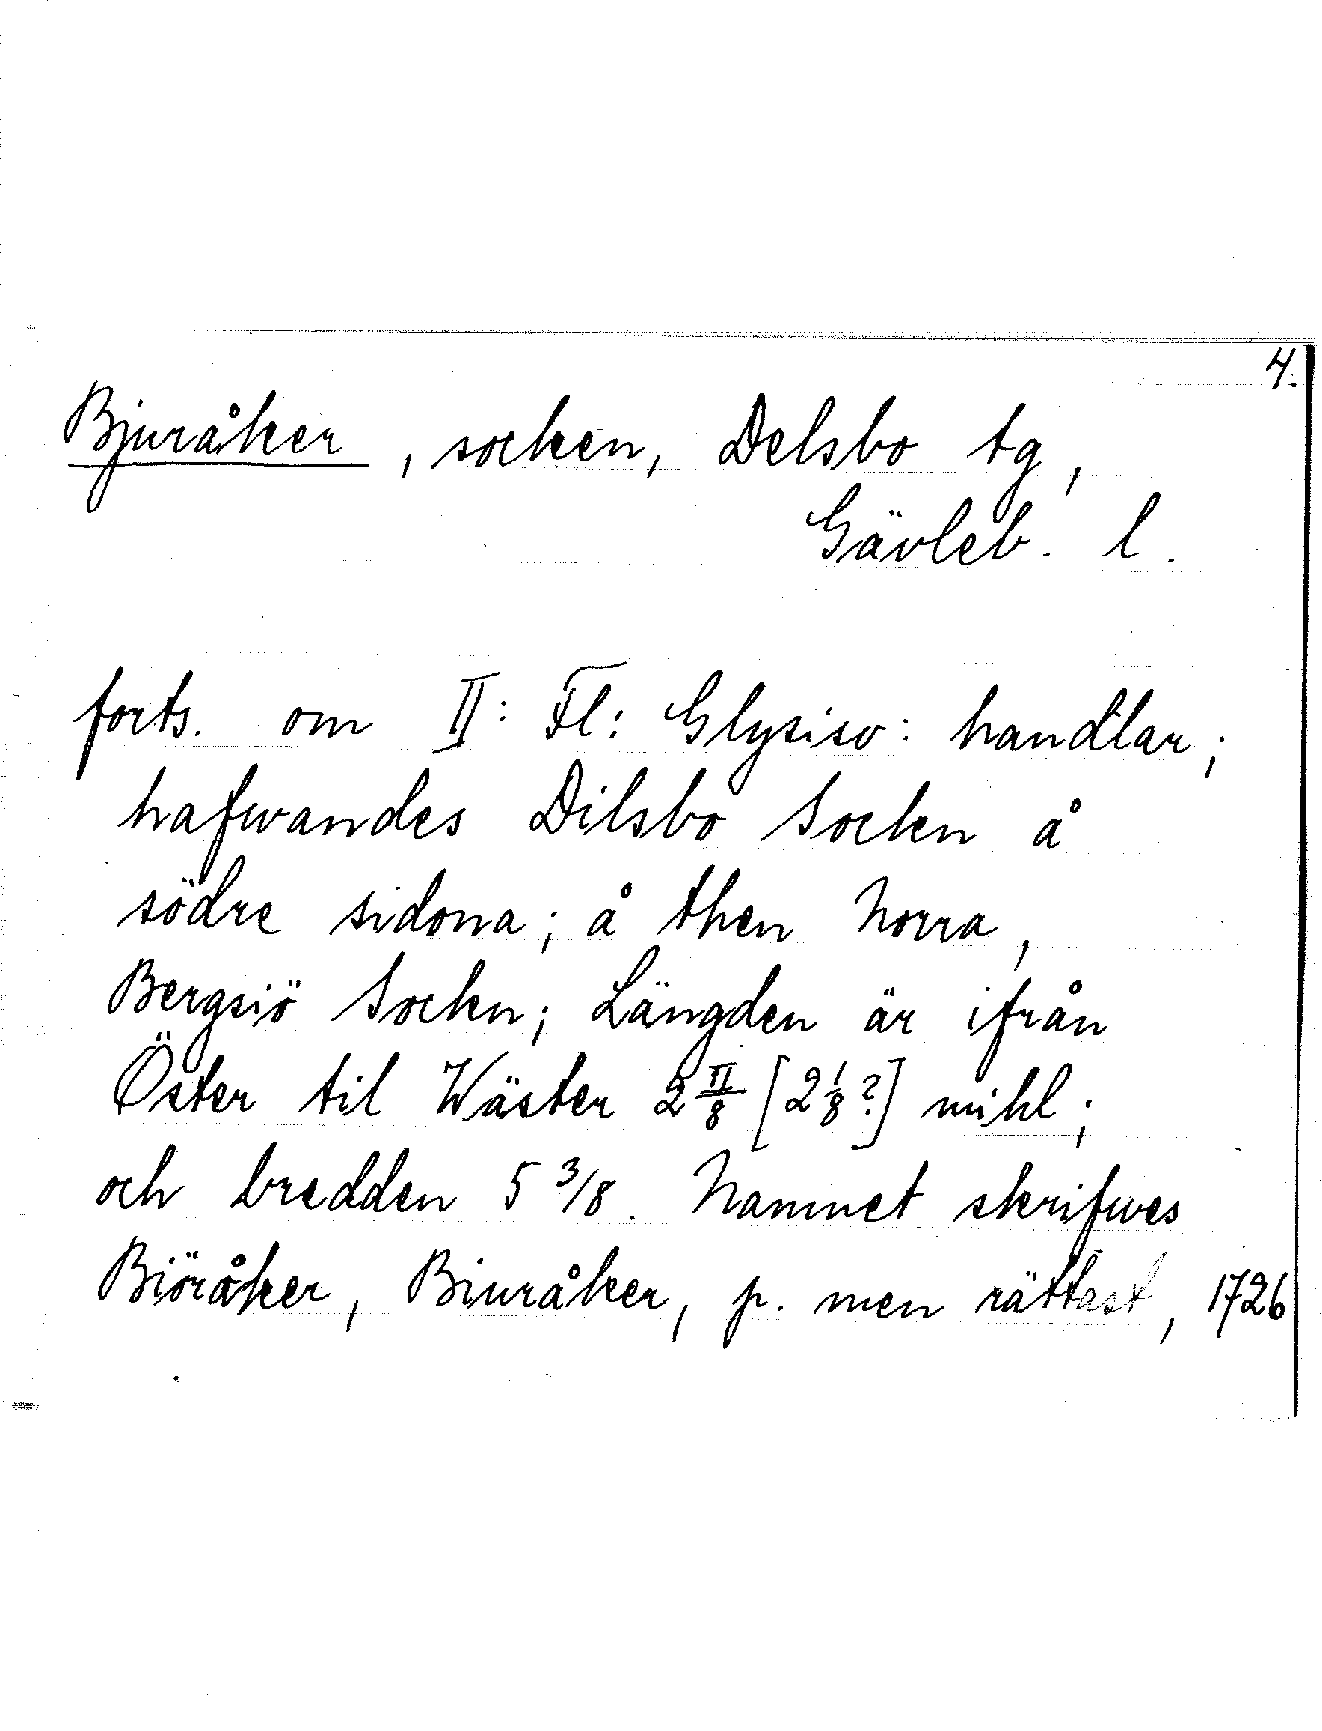 4.
Bjuråker, socken, Delsbo tg,
Gävleb. l.
forts. om II: Fl: Glysisv: handlar;
hafwandes Dilsbo Sockn å
södre sidona; å then Norra,
Bergsiö Sockn; Längden är ifrån
Öster til Wäster 2 II/8 [2 1/8?] mihl;
och bredden 5 3/8. Namnet skrifwes
Biöråker, Biuråker, p. men rättast, 1726